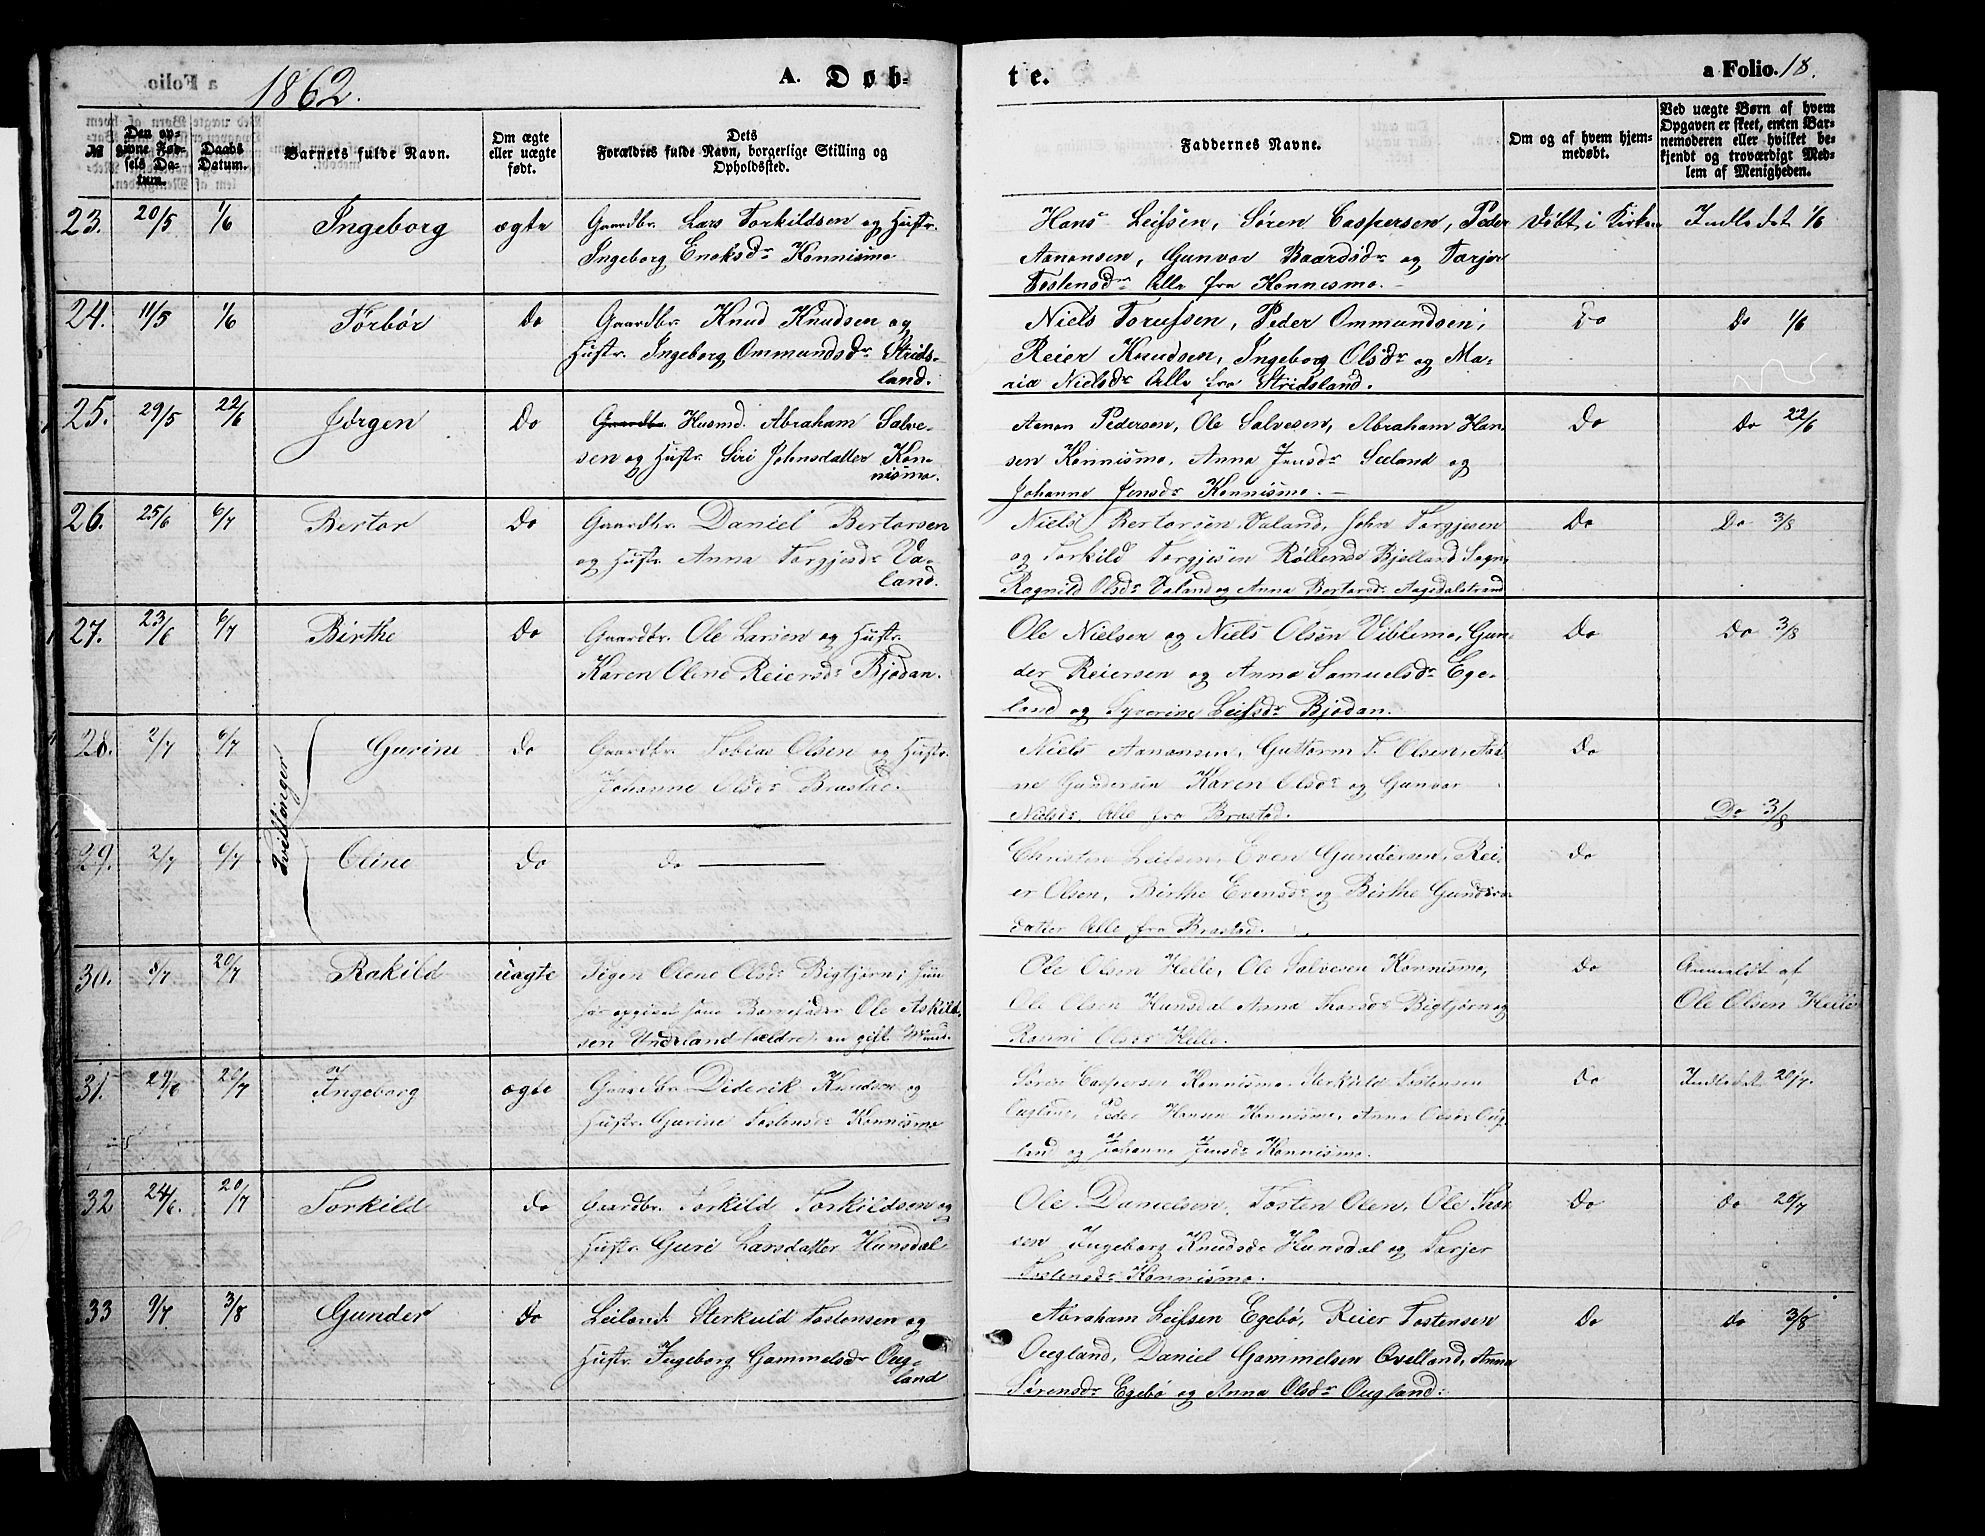 1862.
A. Døb-
te.
a Folio. 18.
№
Den op-
givne Fød-
sels Da-
tum.
Daabs
Datum.
Barnets fulde Navn.
Om ægte
eller uægte
født.
Dets
Forældres fulde Navn, borgerlige Stilling og
Opholdssted.
Faddernes Navne.
Om og af hvem hjem-
medøbt.
Ved uægte Børn af hvem
Opgaven er skeet, enten Bar-
nemoderen eller hvilket be-
kjendt og troværdigt Med-
lem af Menigheden.
23. 20/5 1/6 Ingeborg ægte
Gaardbr. Lars Torkildsen og Hustr.
Ingeborg Enoksdr Konnismo
Hans Leifsen, Sören Caspersen, Peder
Aanonsen, Gunvor Baardsdr og Tarjer
Tostensdr Alle fra Konnesmo.
Döbt i Kirken
Indledet 1/6
24. 11/5 1/6 Torbör Do
Gaardbr. Knud Knudsen og
Hustr. Ingeborg Ommundsdr Strids-
land.
Niels Torufsen, Peder Ommundsen,
Reier Knudsen, Ingeborg Olsdr og Ma-
ria Nielsdr Alle fra Stridsland.
Do
Do 1/6
25. 29/5 22/6 Jørgen Do
Gaardbr. Husmd. Abraham Salve-
sen og Hustr. Siri Johnsdatter Kon-
nismo.
Aanon Pedersen, Ole Salvesen, Abraham Han-
sen Konnismo, Anna Jensdr Seland og
Johanne Jensdr Konnismo.
Do
Do 22/6
26. 25/6 6/7 Bertor Do
Gaardbr. Daniel Bertorsen
og Hustr. Anna Torgjesdr Va-
land.
Niels Bertorsen Valand, John Torgjesen
og Torkild Torgjesen Röllend Bjelland Sogn,
Ragnild Olsdr Valand og Anna Bertorsdr Aagedalstrand
Do
Do 3/8
27. 23/6 6/7 Birthe Do
Gaardbr. Ole Larsen og Hustr.
Karen Oline Reiersdr Bjodan.
Ole Nielsen og Niels Olsen Viblemo, Gun-
der Reiersen og Anna Samuelsdr Ege-
land og Syverine Leifsdr Bjodan.
Do
Do 3/8
Tvillinger
28. 2/7 6/7 Gurine Do
Gaardbr. Tobias Olsen og Hustr.
Johanne Olsdr Brastad.
Niels Aanonsen, Guttorm T. Olsen, Aa-
ne Gundersen Karen Olsdr og Gunvor
Nielsdr. Alle fra Brastad.
Do
Do 3/8
29. 2/7 6/7 Oline Do
Do
Christen Leifsen, Even Gundersen, Rei-
er Olsen, Birthe Evensdr og Birthe Gunders-
datter Alle fra Brastad.
Do
30. 8/7 20/7 Rakild uægte
Pigen Olene Olsdr Bigtjörn; hun
har opgivet som Barnefader Ole Askild-
sen Underland (ældre) en gift Mand.
Ole Olsen Helle, Ole Salvesen Konnismo,
Ole Olsen Hunsdal Anna Thorsdr Bigtjörn og
Ranni Olsdr Helle.
Do
Anmeldt af
Ole Olsen Helle
31. 29/6 20/7 Ingeborg ægte
Gaardbr. Diderik Knudsen og
Hustr. Gurine Tostensdr Konnismo
Sören Caspersen Konnismo, Sterkild Tostensen
Ougland, Peder Hansen Konnismo, Anna Olsdr Oug-
land og Johanne Jensdr Konnismo.
Do
Indledet 20/7.
32 24/6. 20/7 Torkild Do
Gaardbr. Torkild Torkildsen og
Hustr. Guri Larsdatter Hunsdal
Ole Danielsen, Tosten Olsen, Ole Thor-
sen Ingeborg Knudsdr Hunsdal og Tarjer
Tostensdr Konnismo.
Do
do 20/7
33 9/7 3/8 Gunder Do
Leilend. Sterkuld Tostensen og
Hustr. Ingeborg Gammelsdr Oug-
land
Abraham Leifsen Egebö, Reier Tostensen
Ougland, Daniel Gammelsen Qvelland, Anna
Sörensdr Egebö og Anna Olsdr Ougland.
Do
do 3/8